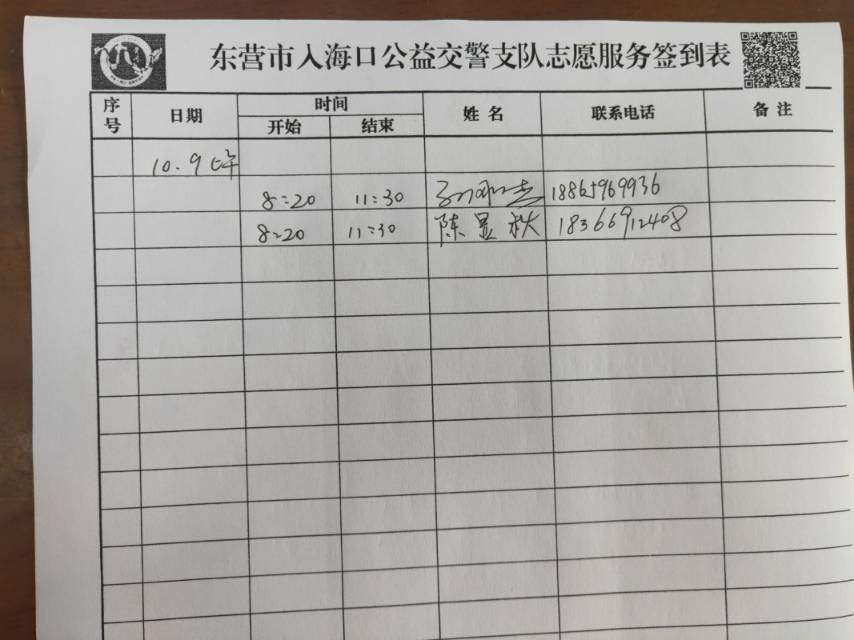 东营市入海口公益交警支队志愿服务签到表
序号 日期 时间 姓名 联系电话 备注
开始 结束
10.9 上午
8:20 11:30 18865969936
8:20 11:30 陈昱秋 18366912408